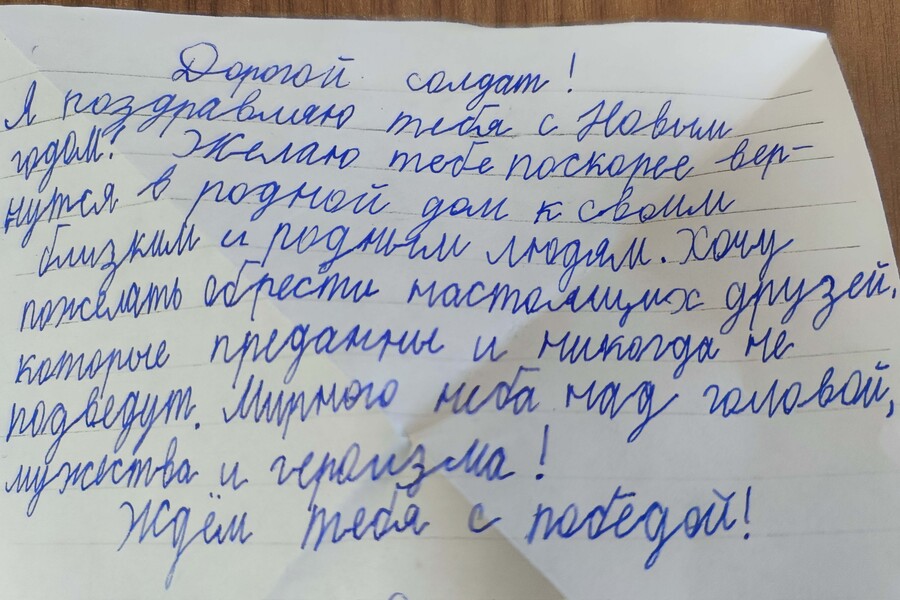 Дорогой солдат!
Я поздравляю тебя с Новым
годом! Желаю тебе поскорее вер-
нутся в родной дом к своим
близким и родным людям. Хочу
пожелать обрести настоящих друзей,
которые преданны и никогда не
подведут. Мирного неба над головой,
мужества и героизма!
Ждём тебя с победой!